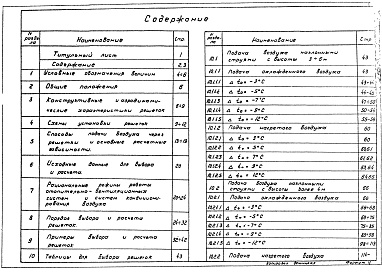 Содержание
№ раздела Наименование Стр.
Титульный лист 1
Содержание 2,3
1 Условные обозначения величин 4÷6
2 Общие положения 8
3 Конструктивные и аэродинамические характеристики решеток 8÷9
4 Схемы установки решеток 9÷12
5 Способы подачи воздуха через решетки и основные расчетные зависимости.
6 Исходные данные для выбора и расчета решеток. 20
7 Рациональные режимы работы отопительно-вентиляционных систем и систем кондиционирования воздуха
8 Порядок выбора и расчета решеток.
9 Примеры выбора и расчета решеток.
10 Таблицы для выбора решеток 43
№ раздела Наименование Стр
10.1 Подача воздуха наклонными струями с высоты 3÷6м 43
10.1.1 Подача охлажденного воздуха 43
10.1.1.1 Δ t₀ = -3°C
10.1.1.2 Δ t₀ = -5°C
10.1.1.3 Δ t₀ = -7°C
10.1.1.4 Δ t₀ = -9°C
10.1.1.5 Δ t₀ = -12°C
10.1.2 Подача нагретого воздуха 60
10.1.2.1 Δ t₀ = 3°C 60
10.1.2.2 Δ t₀ = 5°C
10.1.2.3 Δ t₀ = 7°C
10.1.2.4 Δ t₀ = 9°C
10.1.2.5 Δ t₀ = 12°C
10.2 Подача воздуха наклонными струями с высоты более 6м 66
10.2.1 Подача охлажденного воздуха 66
10.2.1.1 Δ t₀ = -3°C
10.2.1.2 Δ t₀ = -5°C
10.2.1.3 Δ t₀ = -7°C
10.2.1.4 Δ t₀ = -9°C
10.2.1.5 Δ t₀ = -12°C
10.2.2 Подача нагретого воздуха